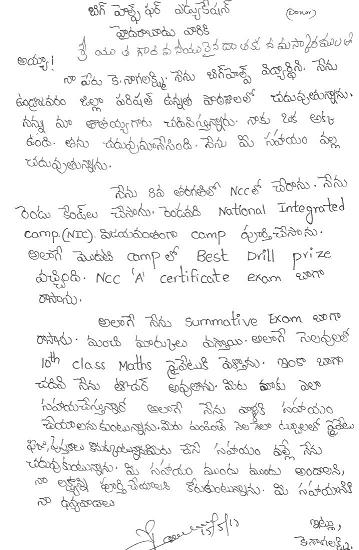 బిగ్ హెల్ప్ ఫర్ ఎడ్యుకేషన్ (Donor)
హైదరాబాదు వారికి
శ్రీ యుత గౌరవనీయులైన దాతకు నమస్కారములతో
అయ్యా!
నా పేరు కె.నాగలక్ష్మి. నేను బిగ్‌హెల్ప్ విద్యార్థిని. నేను
ఉండ్రాజవరం జిల్లా పరిషత్ ఉన్నత పాఠశాలలో చదువుతున్నాను.
నన్ను మా తాతయ్యగారు చదివిస్తున్నారు. నాకు ఒక అక్క
ఉంది. తను చదువుమానేసింది. నేను మీ సహాయం వల్ల
చదువుతున్నాను.
నేను 8వ తరగతిలో NCCలో చేరాను. నేను
రెండు కేంప్‌లు చేసాను. రెండవది National Integrated
camp.(NIC). విజయవంతంగా camp పూర్తిచేసాను.
అలాగే మొదటి campలో Best Drill prize
వచ్చింది. NCC 'A' certificate exam బాగా
రాసాను.
అలాగే నేను summative Exam బాగా
రాసాను. మంచి మార్కులు వస్తాయి. అలాగే సెలవులలో
10th class Maths ప్రైవేటుకి వెళ్తాను. ఇంకా బాగా
చదివి నేను టీచర్ అవుతాను. మీరు మాకు ఎలా
సహాయంచేస్తున్నారో అలాగే నేను వాళ్లకి సహాయం
చేయాలనుకుంటున్నాను. మీరు పంపించే నెల నెలా డబ్బులతో
పుస్తకాలు కొనుక్కుంటున్నాను మీరు చేసే సహాయం వల్లే నేను
చదువుకుంటున్నాను. మీ సహాయం ముందు ముందు ఉండాలని,
నా లక్ష్యాన్ని పూర్తి చేయాలని కోరుకుంటున్నాను. మీ సహాయానికి
నా ధన్యవాదాలు
ఇట్లు,
15/5/17
కె.నాగలక్ష్మి.